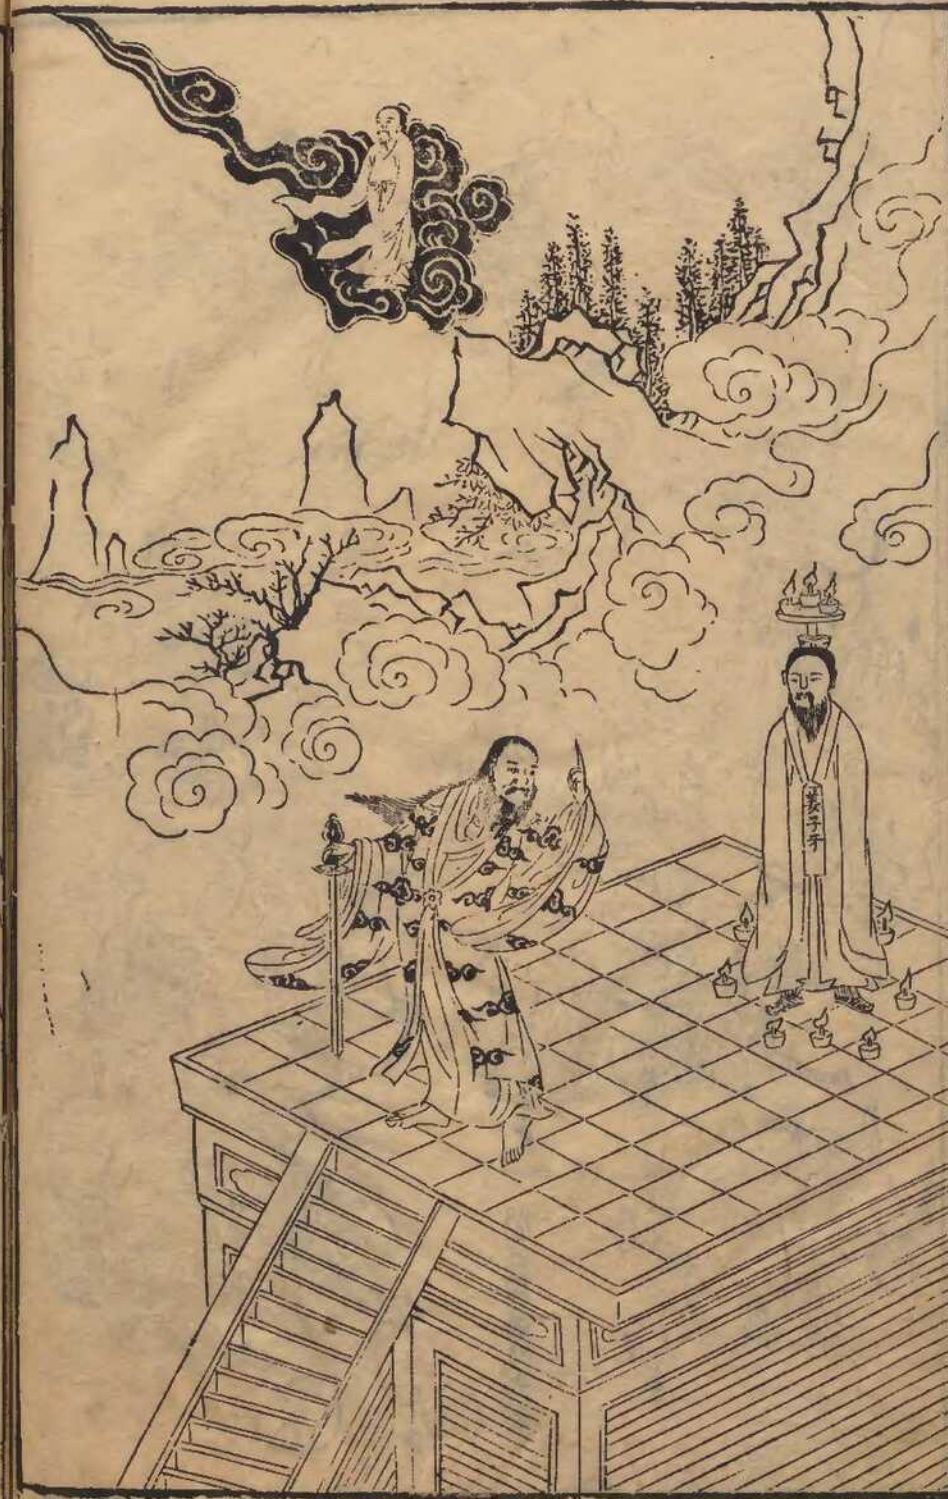 姜子牙